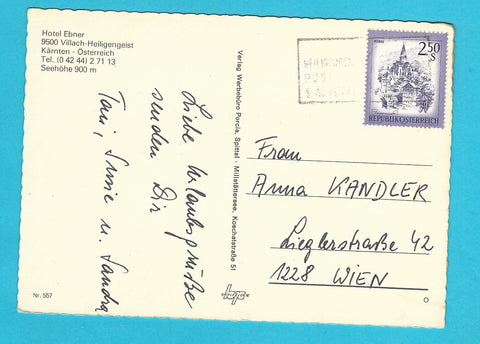 Hotel Ebner
9500 Villach-Heiligengeist
Kärnten - Österreich
Tel. (0 42 44) 2 71 13
Seehöhe 900 m
Liebe Urlaubsgrüße
senden Dir
Toni, Susie u. Sandra
Nr. 557
Verlag Werbebüro Porcia, Spittal - Millstättersee, Koschatstraße 51
bp
2.50
S
REPUBLIK ÖSTERREICH
Frau
Anna KANDLER
Zieglerstraße 42
1228 WIEN